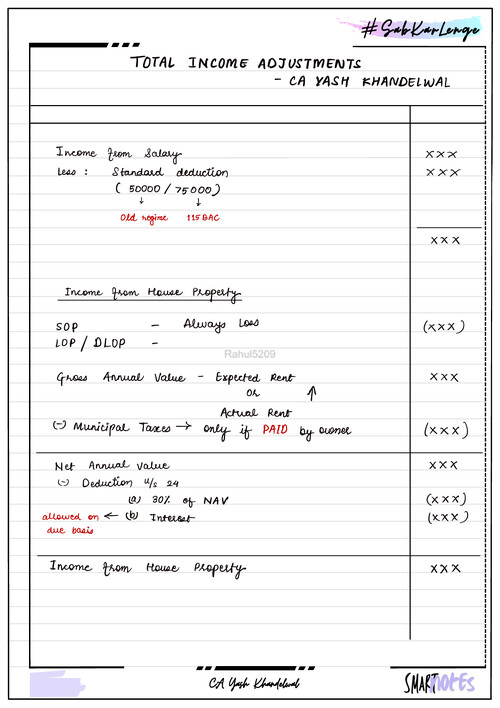 #SabKarLenge
TOTAL INCOME ADJUSTMENTS
- CA YASH KHANDELWAL
Income from Salary xxx
Less : Standard deduction xxx
( 50000 / 75000 )
↓ ↓
Old regime 115BAC
xxx
Income from House Property
SOP - Always Loss (xxx)
LOP / DLOP -
Rahul5209
Gross Annual Value - Expected Rent xxx
or ↑
Actual Rent
(-) Municipal Taxes → only if PAID by owner (xxx)
Net Annual Value xxx
(-) Deduction u/s 24
(a) 30% of NAV (xxx)
allowed on ← (b) Interest (xxx)
due basis
Income from House Property xxx
CA Yash Khandelwal
SMARTNOTES